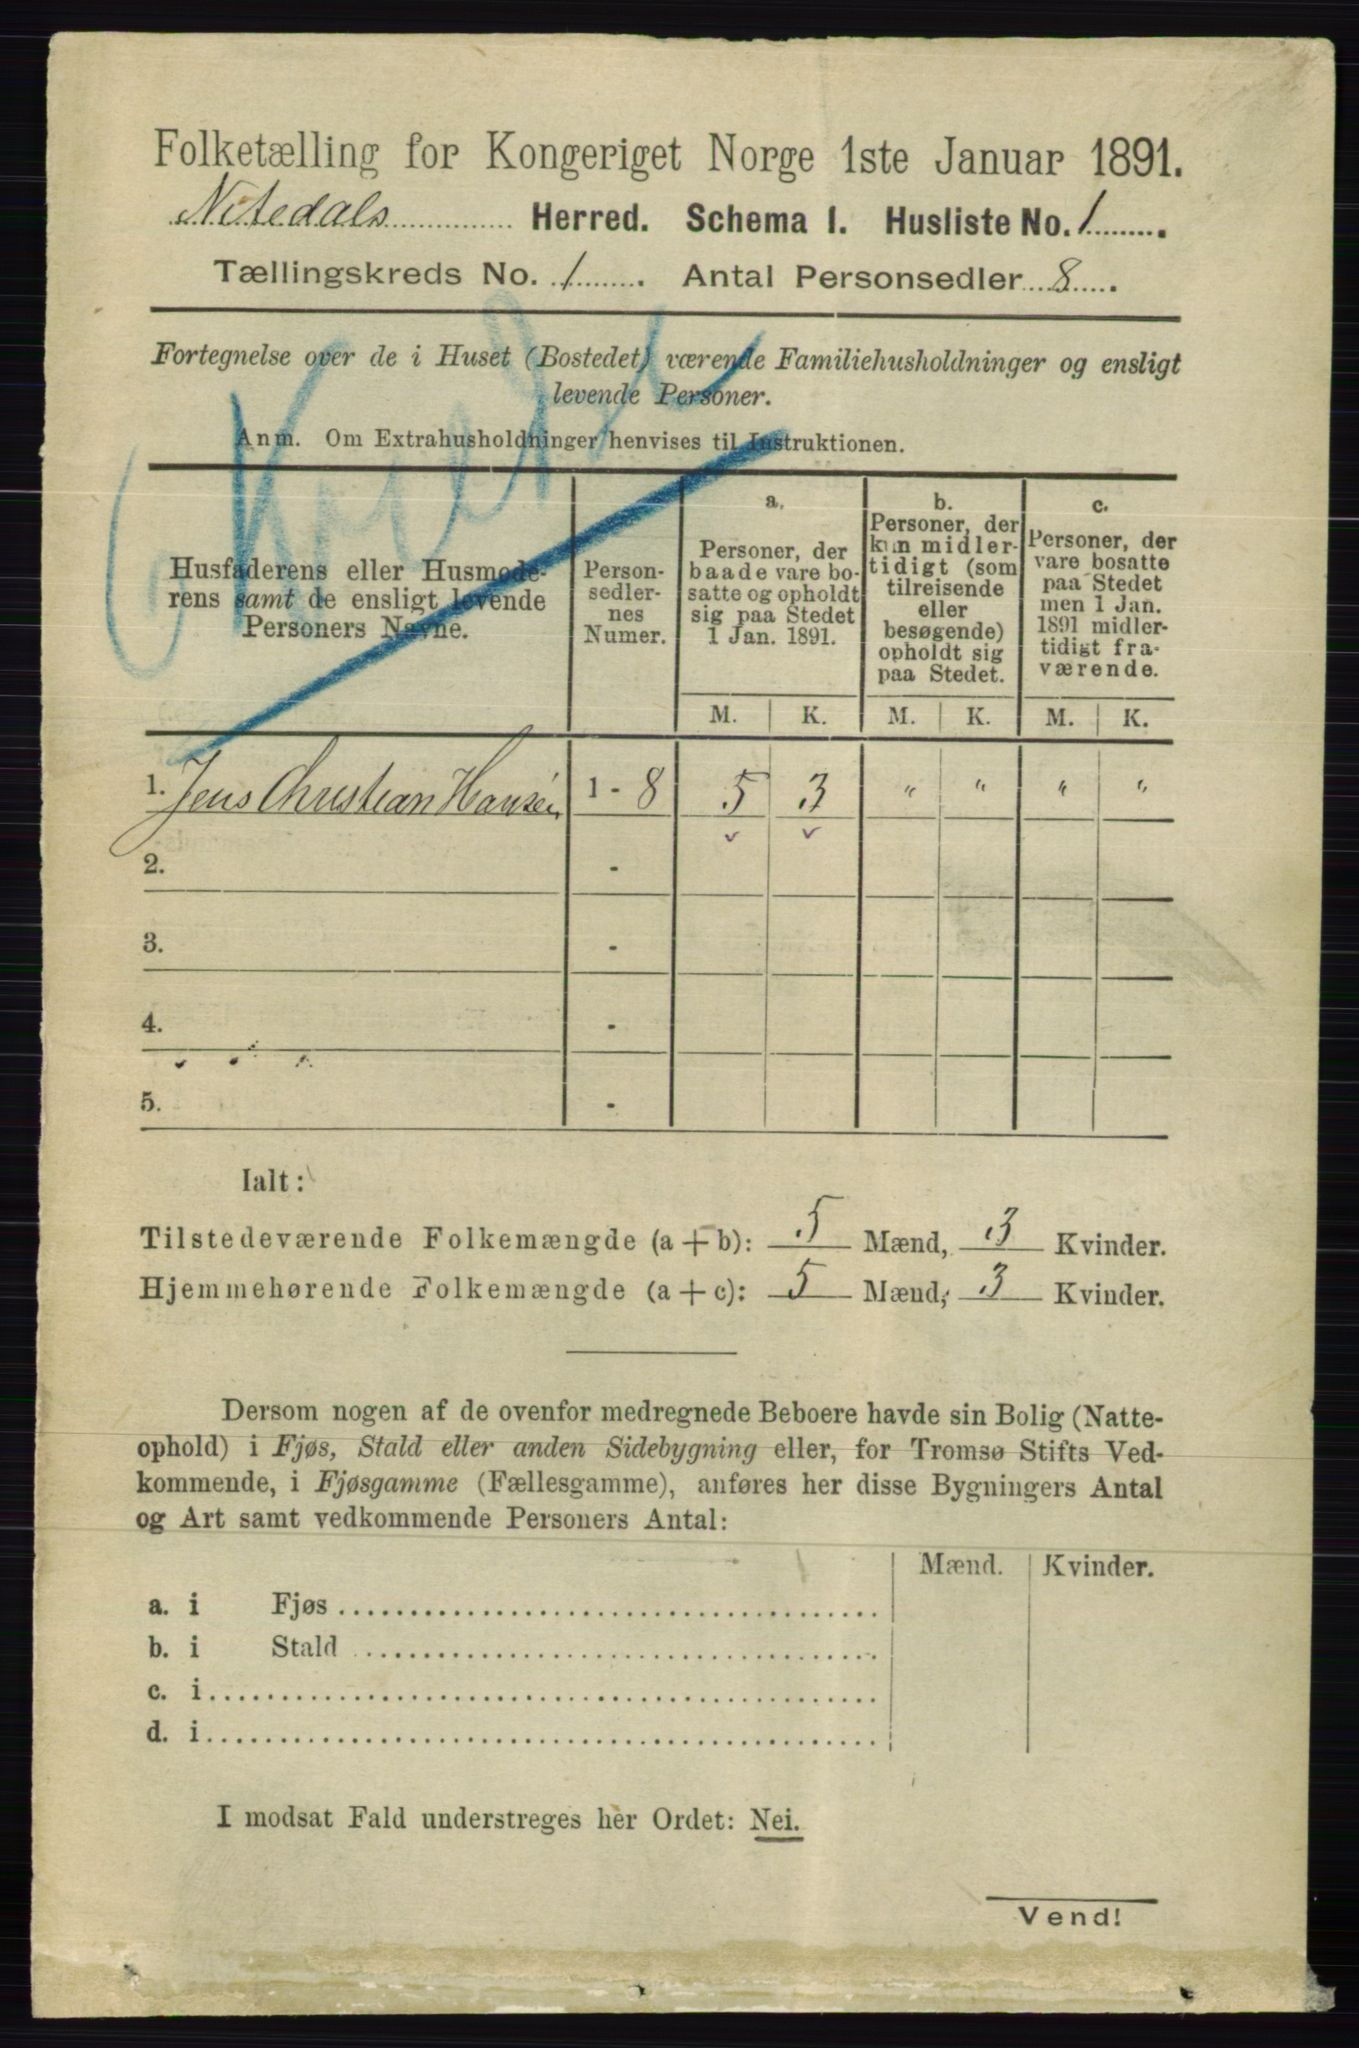 Folketælling for Kongeriget Norge 1ste Januar 1891.
Nitedals Herred. Schema I. Husliste No. 1.
Tællingskreds No. 1. Antal Personsedler 8.
Fortegnelse over de i Huset (Bostedet) værende Familiehusholdninger og ensligt
levende Personer.
Anm. Om Extrahusholdninger henvises til Instruktionen.
Husfaderens eller Husmode-
rens samt de ensligt levende
Personers Navne.
Person-
sedler-
nes
Numer.
a.
Personer, der
baade vare bo-
satte og opholdt
sig paa Stedet
1 Jan. 1891.
b.
Personer, der
kun midler-
tidigt (som
tilreisende
eller
besøgende)
opholdt sig
paa Stedet.
c.
Personer, der
vare bosatte
paa Stedet
men 1 Jan.
1891 midler-
tidigt fra-
værende.
M. K. M. K. M. K.
1. Jens Christian Hansen 1 - 8 5 3 " " " "
2. -
3. -
4. -
5. -
Ialt:
Tilstedeværende Folkemængde (a + b): 5 Mænd, 3 Kvinder.
Hjemmehørende Folkemængde (a + c): 5 Mænd, 3 Kvinder.
Dersom nogen af de ovenfor medregnede Beboere havde sin Bolig (Natte-
ophold) i Fjøs, Stald eller anden Sidebygning eller, for Tromsø Stifts Ved-
kommende, i Fjøsgamme (Fællesgamme), anføres her disse Bygningers Antal
og Art samt vedkommende Personers Antal:
Mænd. Kvinder.
a. i Fjøs
b. i Stald
c. i
d. i
I modsat Fald understreges her Ordet: Nei.
Vend!